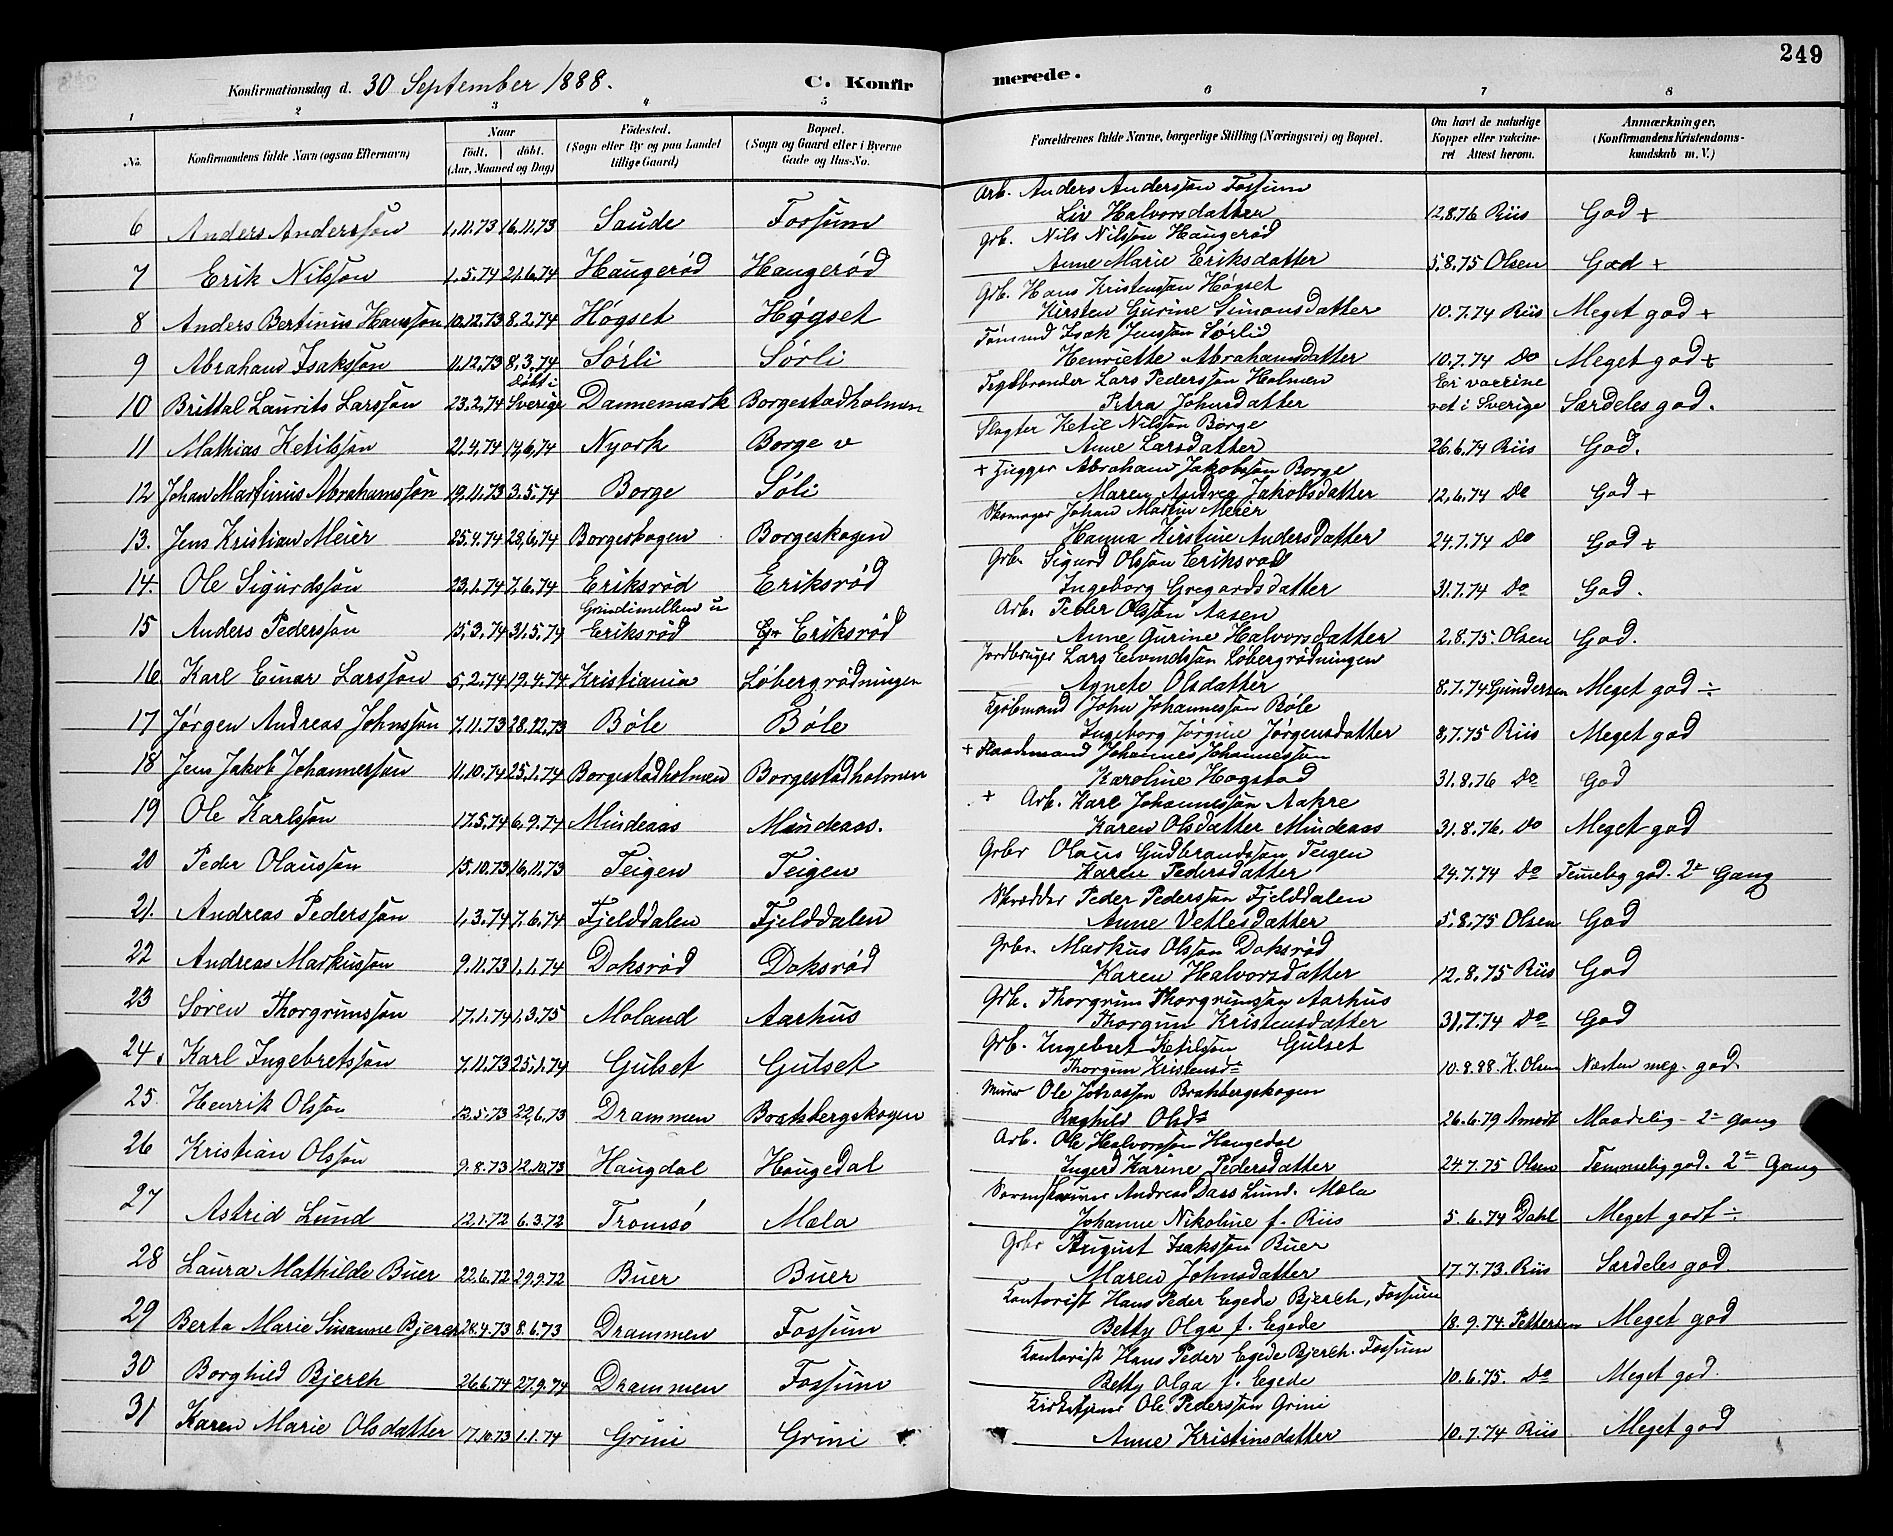 249
Konfirmationsdag d. 30 September 1888. C. Konfirmerede.
1 2 3 4 5 6 7 8
No. Konfirmandens fulde Navn (ogsaa Efternavn) Naar Född. döbt. (Aar, Maaned og Dag) Födested. (Sogn eller By og paa Landet tillige Gaard) Bopæl. (Sogn og Gaard eller i Byerne Gade og Hus-No. Forældrenes fulde Navne, borgerlige Stilling (Næringsvei) og Bopæl. Om havt de naturlige Kopper eller vakcineret Attest herom. Anmærkninger. (Konfirmandens Kristendomskundskab m. V.)
Arb. Anders Andersson Fossum
6 Anders Andersson 1.11.73 16.11.73 Saude Fossum Liv Halvorsdatter 12.8.76 Riis God +
Grb. Nils Nilsson Haugerød
7 Erik Nilsson 1.5.74 21.6.74 Haugerød Haugerød Anne Marie Eriksdatter 5.8.75 Olsen God +
Grb. Hans Kristensson Høgset
8 Anders Bertinius Hansson 10.12.73 8.2.74 Høgset Høgset Kirsten Gurine Simonsdatter 10.7.74 Riis Meget god +
Tømmd Isak Jensson Sørli
9 Abraham Isaksson 11.12.73 8.3.74 Sørli Sørli Henriette Abrahamsdatter 10.7.74 Do Meget god +
døbt i Teglbrænder Lars Pedersson Holmen Er vaccine
10 Brittal Laurits Larsson 23.2.74 Sverige Dannemark Borgestadholmen Petra Johnsdatter ret i Sverige Særdeles god.
Slagter Ketil Nilsson Borge
11 Mathias Ketilsson 21.4.74 14.6.74 Nyork Borge v Anne Larsdatter 26.6.74 Riis God.
+ Abraham Jakobsson Borge
12 Johan Martinius Abrahamsson 19.11.73 3.5.74 Borge Søli Maren Andrea Jakobsdatter 12.6.74 Do God +
Skomager Johan Martin Meier
13. Jens Kristian Meier 25.4.74 28.6.74 Borgeskogen Borgeskogen Hanna Kirstine Andersdatter 24.7.74 Do God +
Grb. Sigurd Olsson Eriksrød
14. Ole Sigurdsson 23.1.74 7.6.74 Eriksrød Eriksrød Ingeborg Gregardsdatter 31.7.74 Do God.
Grindimellem u Arb. Peder Olsson Aasen
15 Anders Pedersson 15.3.74 31.5.74 Eriksrød Gr Eriksrød Anne Gurine Halvorsdatter 2.8.75. Olsen God.
Jordbruger Lars Eivindsson Løbergrødningen
16. Karl Einar Larsson 5.2.74 19.4.74 Kristiania Løbergrødningen Agnete Olsdatter 8.7.74 Gundersen Meget god ÷
Kjøbmand John Johannesson Bøle
17 Jørgen Andreas Johnsson 7.11.73 28.12.73 Bøle Bøle Ingeborg Jørgine Jørgensdatter 8.7.75 Riis Meget god
+ Johannes Johannesson
18 Jens Jakob Johannesson 11.10.74 25.1.74 Borgestadholmen Borgestadholmen Karoline Hogstad 31.8.76 Do God
+ Arb. Karl Johannesson Aakre
19 Ole Karlsson 17.5.74 6.9.74 Mindeaas Mindeaas. Karen Olsdatter Mindeaas 31.8.76. Do Meget god
Grbr Olaus Gudbrandsson Teigen
20 Peder Olausson 15.10.73 16.11.73 Teigen Teigen Karen Pedersdatter 24.7.74 Do Temmelig god. 2n Gang
Skrædder Peder Pedersson Fjelddalen
21. Andreas Pedersson 1.3.74 7.6.74 Fjelddalen Fjelddalen Anne Vetlesdatter 5.8.75 Olsen God
Grbr. Markus Olsson Doksrød
22 Andreas Markusson 9.11.73 1.1.74 Doksrød Doksrød Karen Halvorsdatter 12.8.75 Riis God
Grb. Thorgrim Thorgrimsson Aarhus
23 Søren Thorgrimsson 17.1.74 1.3.75 Moland Aarhus Thorgun Kristensdatter 31.7.74 Do God
Grb. Ingebret Ketilsson Gulset
24. Karl Ingebretsson 7.11.73 25.1.74 Gulset Gulset Thorgun Kristensd= 10.8.88 K. Olsen Næsten meg. god
Murer Ole Johnsson Bratsbergskogen
25. Henrik Olsson 12.5.73 22.6.73 Drammen Bratsbergskogen Ragnhild Olsd= 26.6.79 Amodt Maadelig - 2n gang
Arb. Ole Halvorsson Haugedal
26 Kristian Olsson 9.8.73 12.10.73 Haugdal Haugedal Ingerd Karine Pedersdatter 24.7.75 Olsen Temmelig god. 2n Gang
Andreas Dass Lund. Mæla
27 Astrid Lund 12.1.72 6.3.72 Tromsø Mæla Johanne Nikoline f. Riis 5.6.74 Dahl Meget godt ÷
Grbr August Isaksson Buer
28 Laura Mathilde Buer 22.6.72 29.9.72 Buer Buer Maren Johnsdatter 17.7.73. Riis Særdeles god.
Kontorist Hans Peder Egede Bjerch, Fossum
29 Berta Marie Susanne Bjerch 28.4.73 8.6.73 Drammen Fossum Betty Olga f. Egede 18.9.74. Pettersen Meget god
Kontorist Hans Peder Egede Bjerch. Fossum
30 Borghild Bjerch 26.6.74 27.9.74 Drammen Fossum Betty Olga f. Egede 10.6.75. Do Meget god.
Kirketjener Ole Pedersson Grini
31 Karen Marie Olsdatter 17.10.73 1.1.74 Grini Grini Anne Kristinsdatter 10.7.74 Riis Meget god